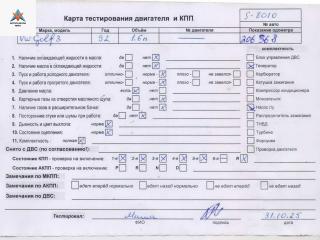 Карта тестирования двигателя и КПП
S-8010
№ авто
Марка, модель Год Объём № двигателя Показания одометра
VW Golf 3 92 1.8 206 868
комплектность
1. Наличие охлаждающей жидкости в масле да нет
2. Наличие масла в охлаждающей жидкости да нет
3. Пуск и работа холодного двигателя отлично норма нет
4. Пуск и работа прогретого двигателя отлично норма нет
5. Давление масла есть нет
6. Картерные газы на отверстии масляного щупа да нет
7. Наличие сизых в расширительном бачке да нет
8. Посторонние стуки или шумы при работе да нет
9. Дымность и цвет выхлопа норма нет
10. Состояние оценивания норма нет
11. Комплектность полная нет
Блок управления ДВС
Карбюратор
Катушка зажигания
Компрессор кондиционера
Насос ГУ
Распределитель зажигания
ТНВД
Турбина
Форсунки
Проверка двигателя
Снято с ДВС (по согласованию!):
Состояние КПП - проверка на включение: 1 2 3 4 5 6 R
Состояние АКПП - проверка на включение: P R N D
Замечания по МКПП:
Замечания по АКПП: едет вперёд нормально едет назад нормально не едет вперёд не едет назад
Замечания по ДВС:
Тестировал: Миша 31.10.25
ФИО подпись дата